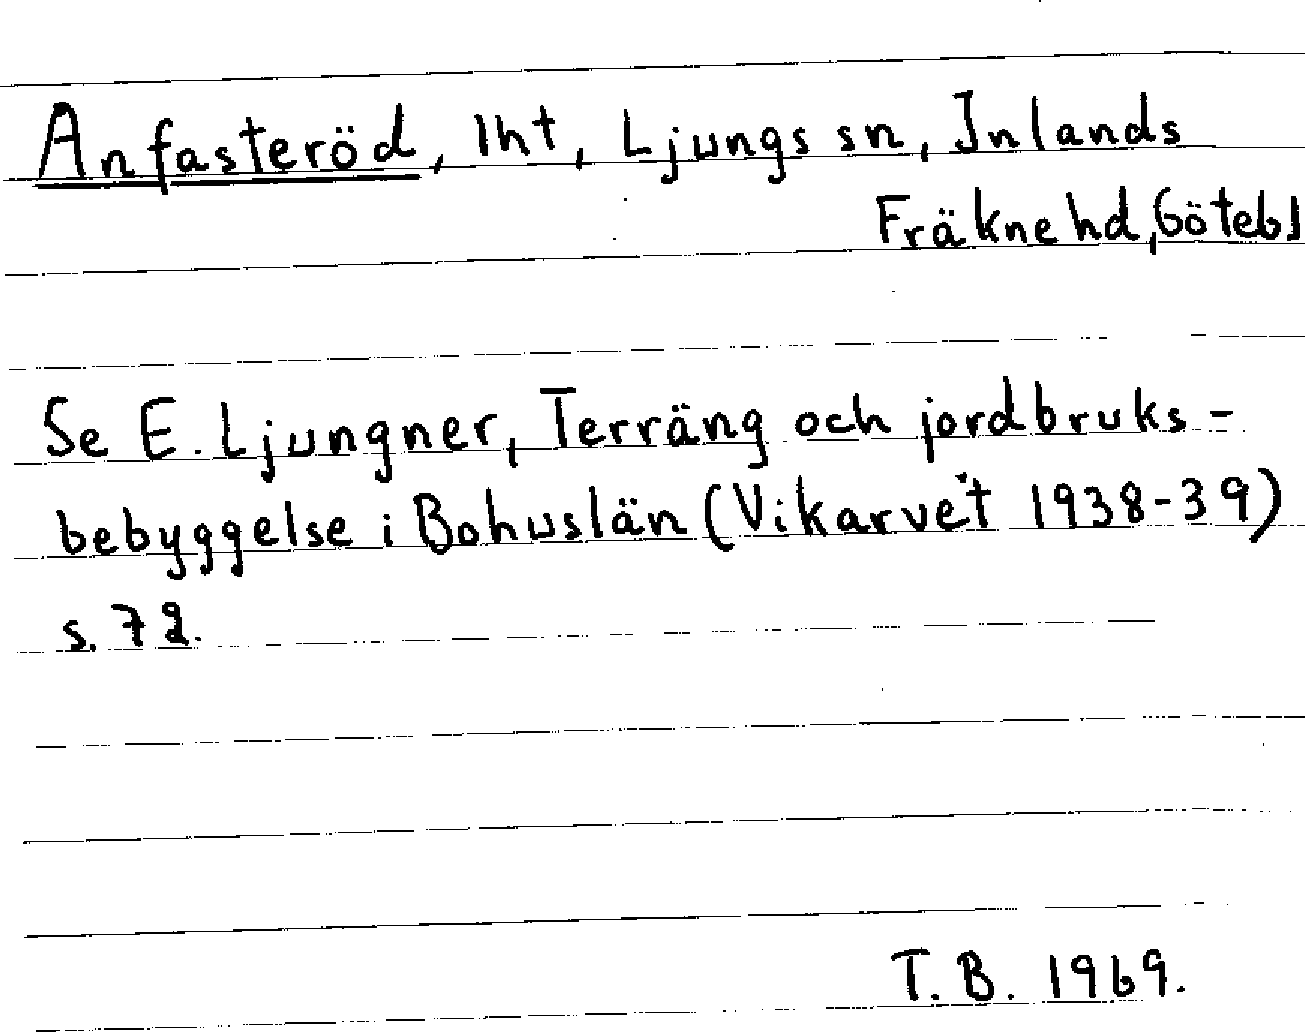 Anfasteröd, lht, Ljungs sn, Inlands
Fräkne hd, Götebl
Se E. Ljungner, Terräng och jordbruks-
bebyggelse i Bohuslän (Vikarvet 1938-39)
s. 72.
T.B. 1969.